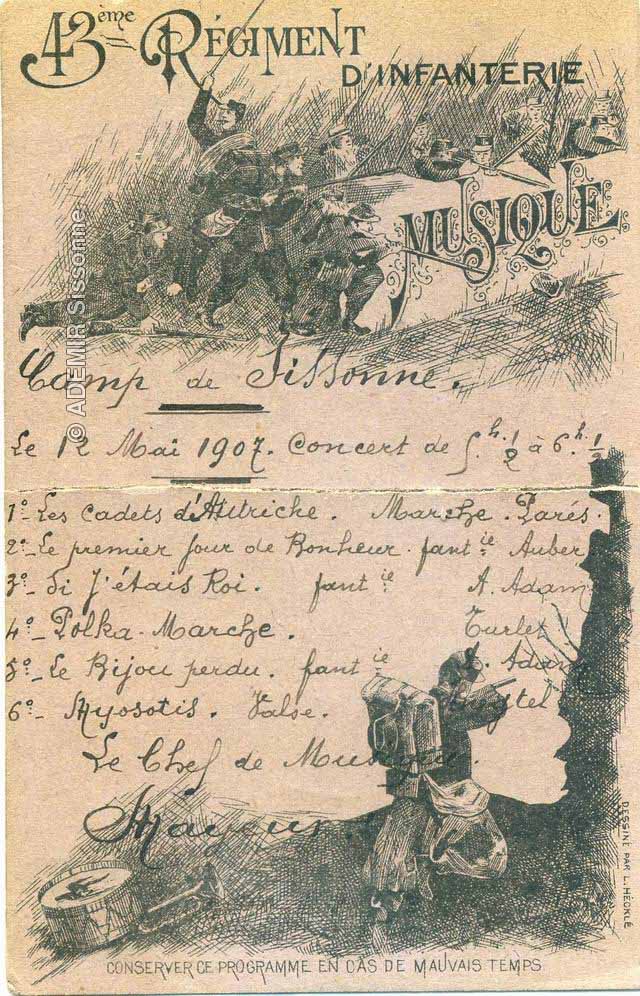 43ème RÉGIMENT
D'INFANTERIE
MUSIQUE
Camp de Sissonne.
Le 12 Mai 1907. Concert de 5h. 1/2 à 6h. 1/2
1º_ Les Cadets d'Autriche. Marche. Parés.
2º_ Le premier Jour de Bonheur. fantie Auber
3º_ Si J'étais Roi. fantie A. Adam
4º_ Polka-Marche. Turlet
5º_ Le Bijou perdu. fantie A. Adam
6º_ Myosotis. Valse.
Le Chef de Musique.
Mayeur.
DESSINÉ PAR L. HÉCKLÉ
CONSERVER CE PROGRAMME EN CAS DE MAUVAIS TEMPS
© ADEMIR Sissonne